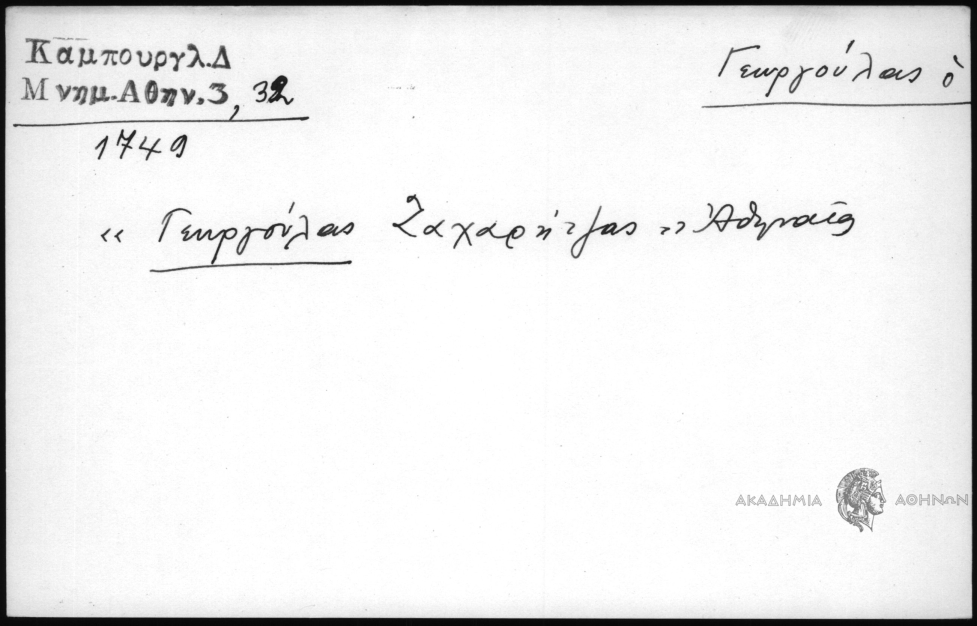 Καμπουργλ.Δ
Μνημ.Αθην.3, 32
Γεωργούλας ὁ
1749
« Γεωργούλας Ζαχαρήτζας » Ἀθηναῖος
ΑΚΑΔΗΜΙΑ ΑΘΗΝΩΝ